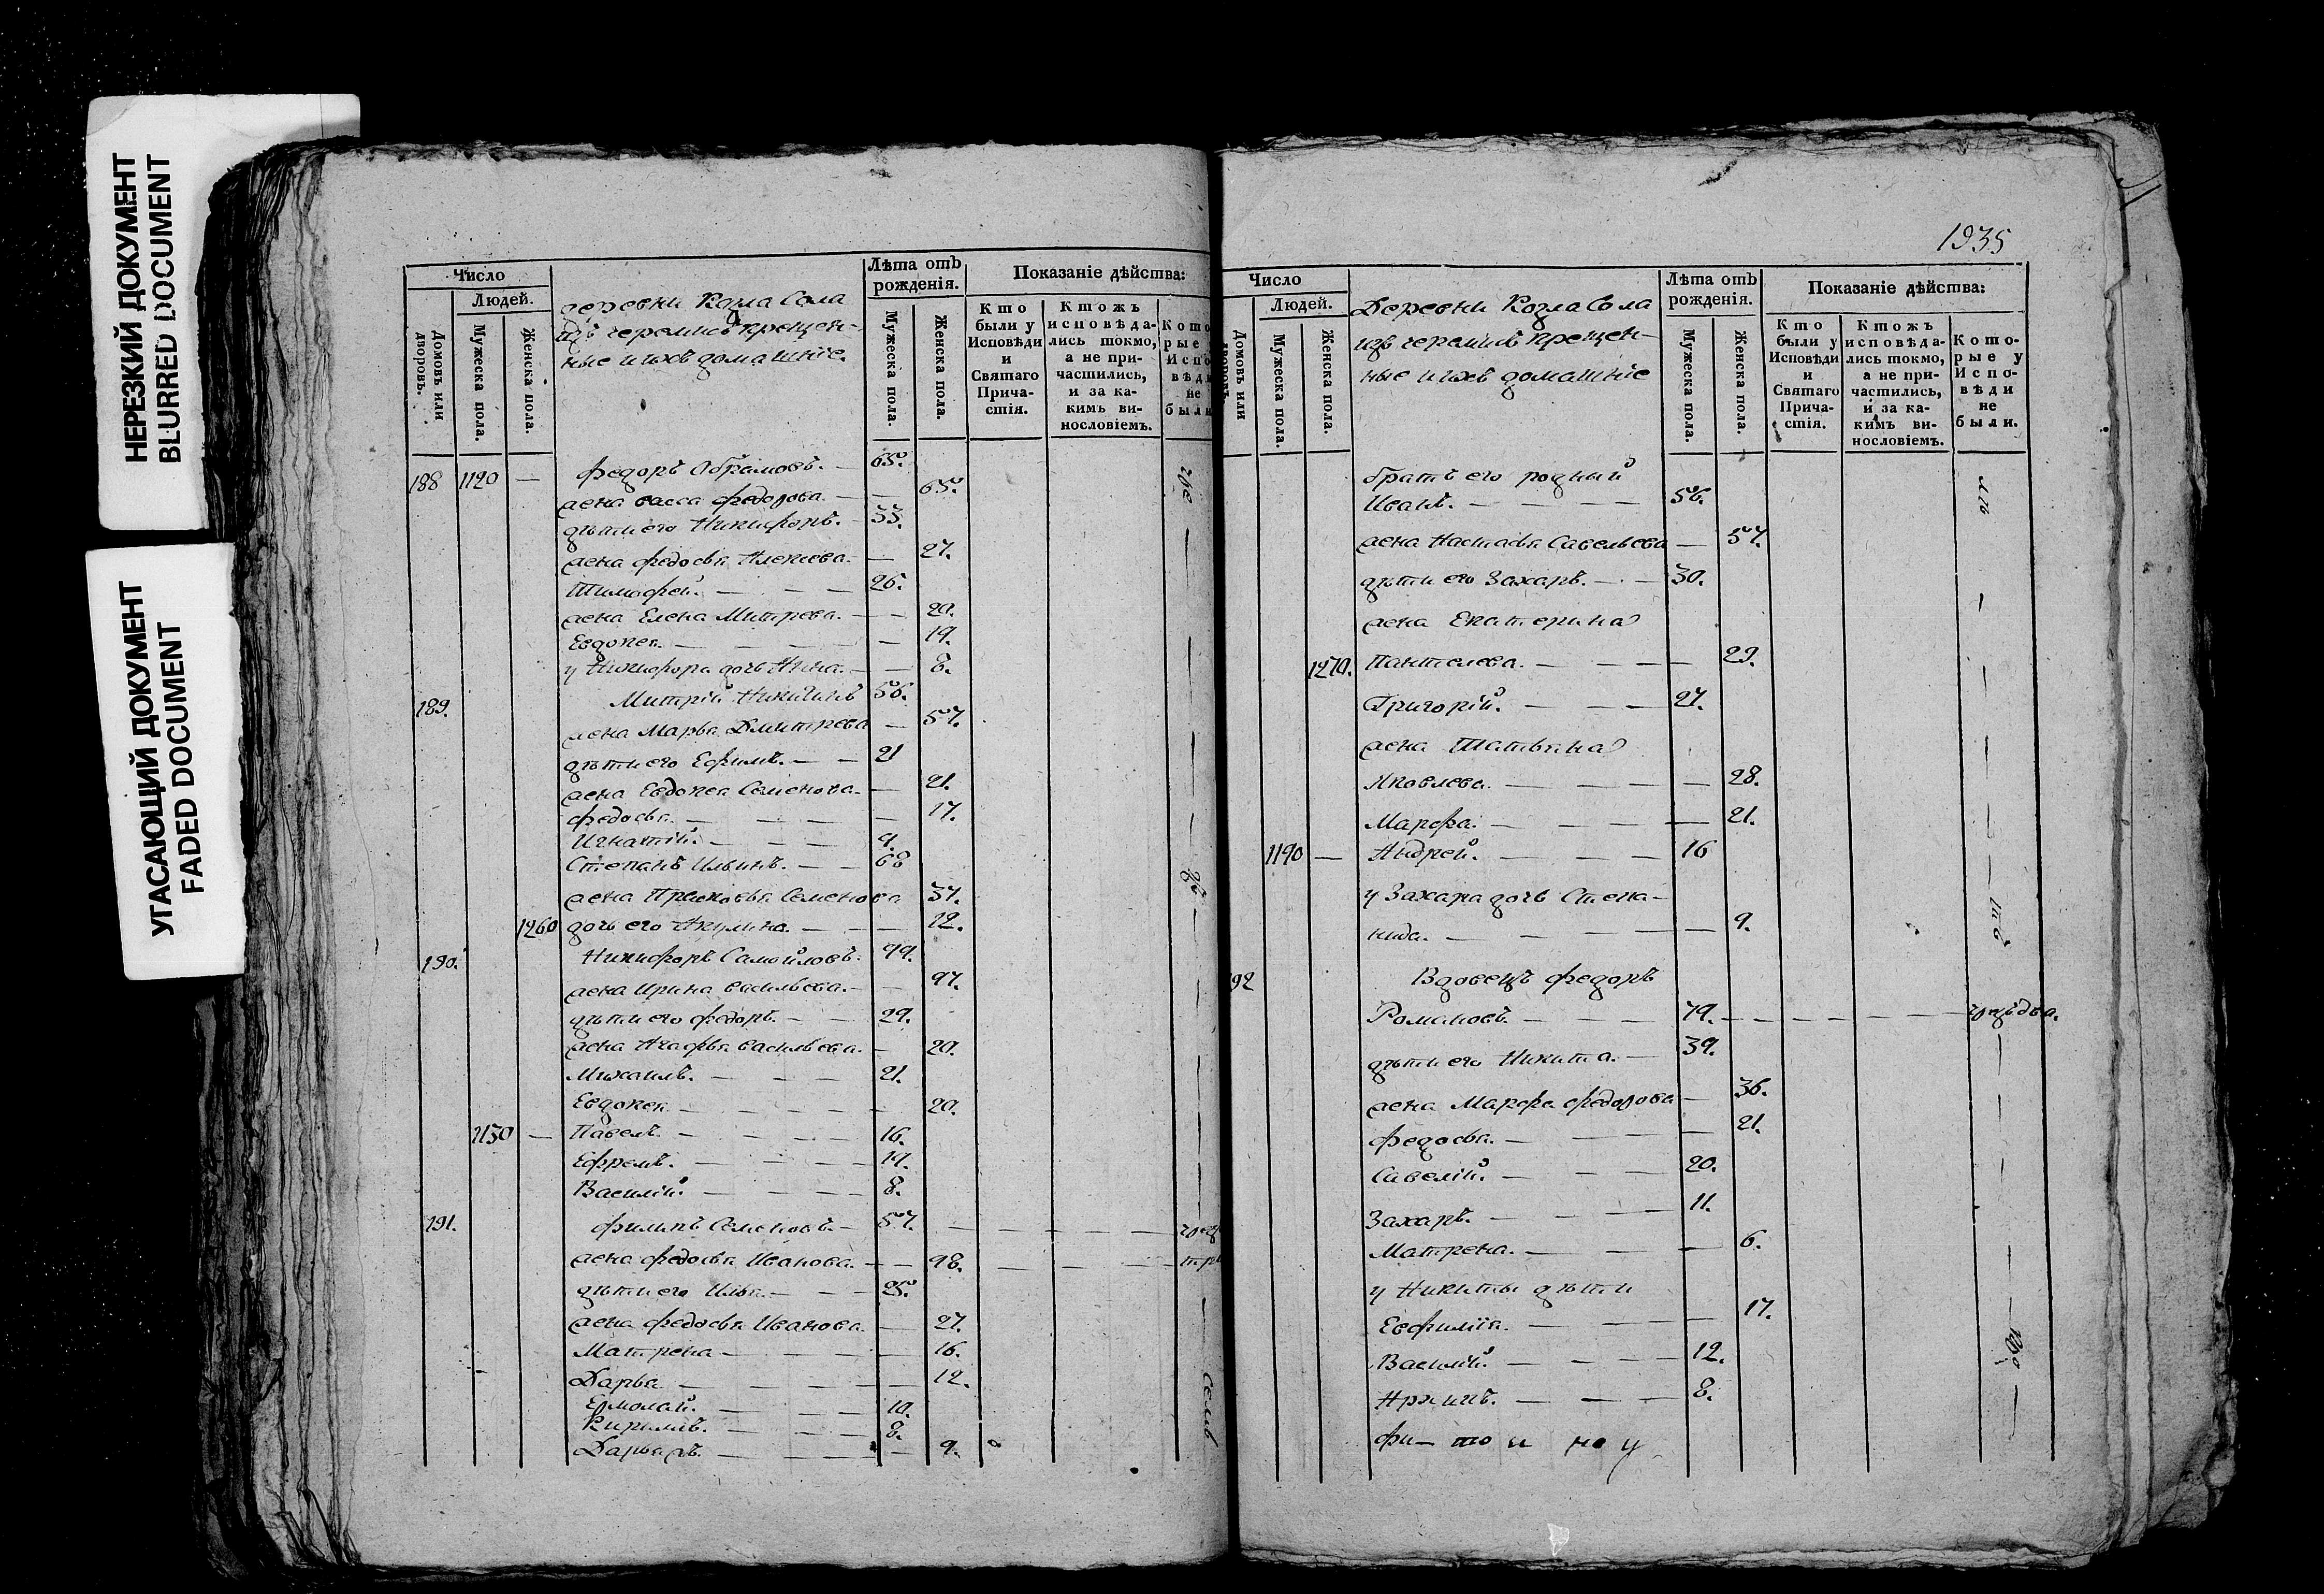 НЕРЕЗКИЙ ДОКУМЕНТ
BLURRED DOCUMENT
УГАСАЮЩИЙ ДОКУМЕНТ
FADED DOCUMENT
Число
Людей.
Домовъ или дворовъ.
Мужеска пола.
Женска пола.
деревни Козла Сола
изъ черемисъ крещен-
ные и ихъ домашніе
Лѣта отъ рожденія.
Мужеска пола.
Женска пола.
Показаніе дѣйства:
Кто были у Исповѣди и Святаго Прича- стія.
Ктожъ исповѣда- лись токмо, а не при- частились, и за ка- кимъ ви- нословіемъ.
188 1120 — Федоръ Абрамовъ. — 65.
жена васса федорова. — — 65.
дѣти его Никифоръ. — 33.
жена федосья Алексева. — 27.
Тимофей. — — — 26.
жена Елена Митрева. — — 20.
Евдокея. — — — — 19.
у Никифора дочь Анна. — — 8.
189. Митрій Никитинъ 56.
жена Марья Дмитрева — 57.
дѣти его Ефимъ. — — 21
жена Евдокея Семенова. — 21.
федосья. — — — — 17.
Игнатій. — — — 9.
Степанъ Ильинъ. — — 68
жена Прасковья Семенова 57.
1260 дочь его Акулина. — — — 12.
190. Никифоръ Самойловъ. 49.
жена Ирина васильева. — — 47.
дѣти его федоръ. — — 29.
жена Агафья васильева. — 20.
Михаилъ. — — — 21.
Евдокея — — — — — 20.
1130 — Павелъ. — — — — 16.
Ефремъ. — — — — 14.
Василій. — — — — 8.
191. филипъ Семеновъ. — 57. — — — — —
жена федосья Иванова. — — 48. — — — —
дѣти его Илья. — — — 25.
жена федосья Иванова. — 27.
Матрена — — — — — 16.
Дарья — — — — — 12.
Ермолай. — — — 10.
Кирилъ. — — — 8.
— — — — 9.
семь
1935
Число
Людей.
Домовъ или
Мужеска пола.
Женска пола.
Деревни Козла Сола
изъ черемисъ крещен-
ные и ихъ домашніе
Лѣта отъ рожденія.
Мужеска пола.
Женска пола.
Показаніе дѣйства:
Кто были у Исповѣди и Святаго Прича- стія.
Ктожъ исповѣда- лись токмо, а не при- частились, и за ка- кимъ ви- нословіемъ.
Кото- рые у Испо- вѣди не были.
братъ его родный
Иванъ. — — — — 56.
жена Настасья Савельева — 57.
дѣти его Захаръ. — — 30.
жена Екатерина
1270. Пантелева. — — — — 29.
Григорій. — — — 27.
жена Татьяна
Яковлева. — — — — 28.
Марфа. — — — — 21.
1140 — Андрей. — — — 16
у Захара дочь Степа-
нида. — — — — — 9.
192 Вдовецъ федоръ
Романовъ. — — — 79. — — — — — —
дѣти его Никита. — 39.
жена Марфа федорова — 36.
федосья. — — — — 21.
Савелій. — — — 20.
Захаръ. — — — 11.
Матрена. — — — — 6.
у Никиты дѣти
Евфимія. — — — — 17.
Василій. — — — — 12.
— — — 8.